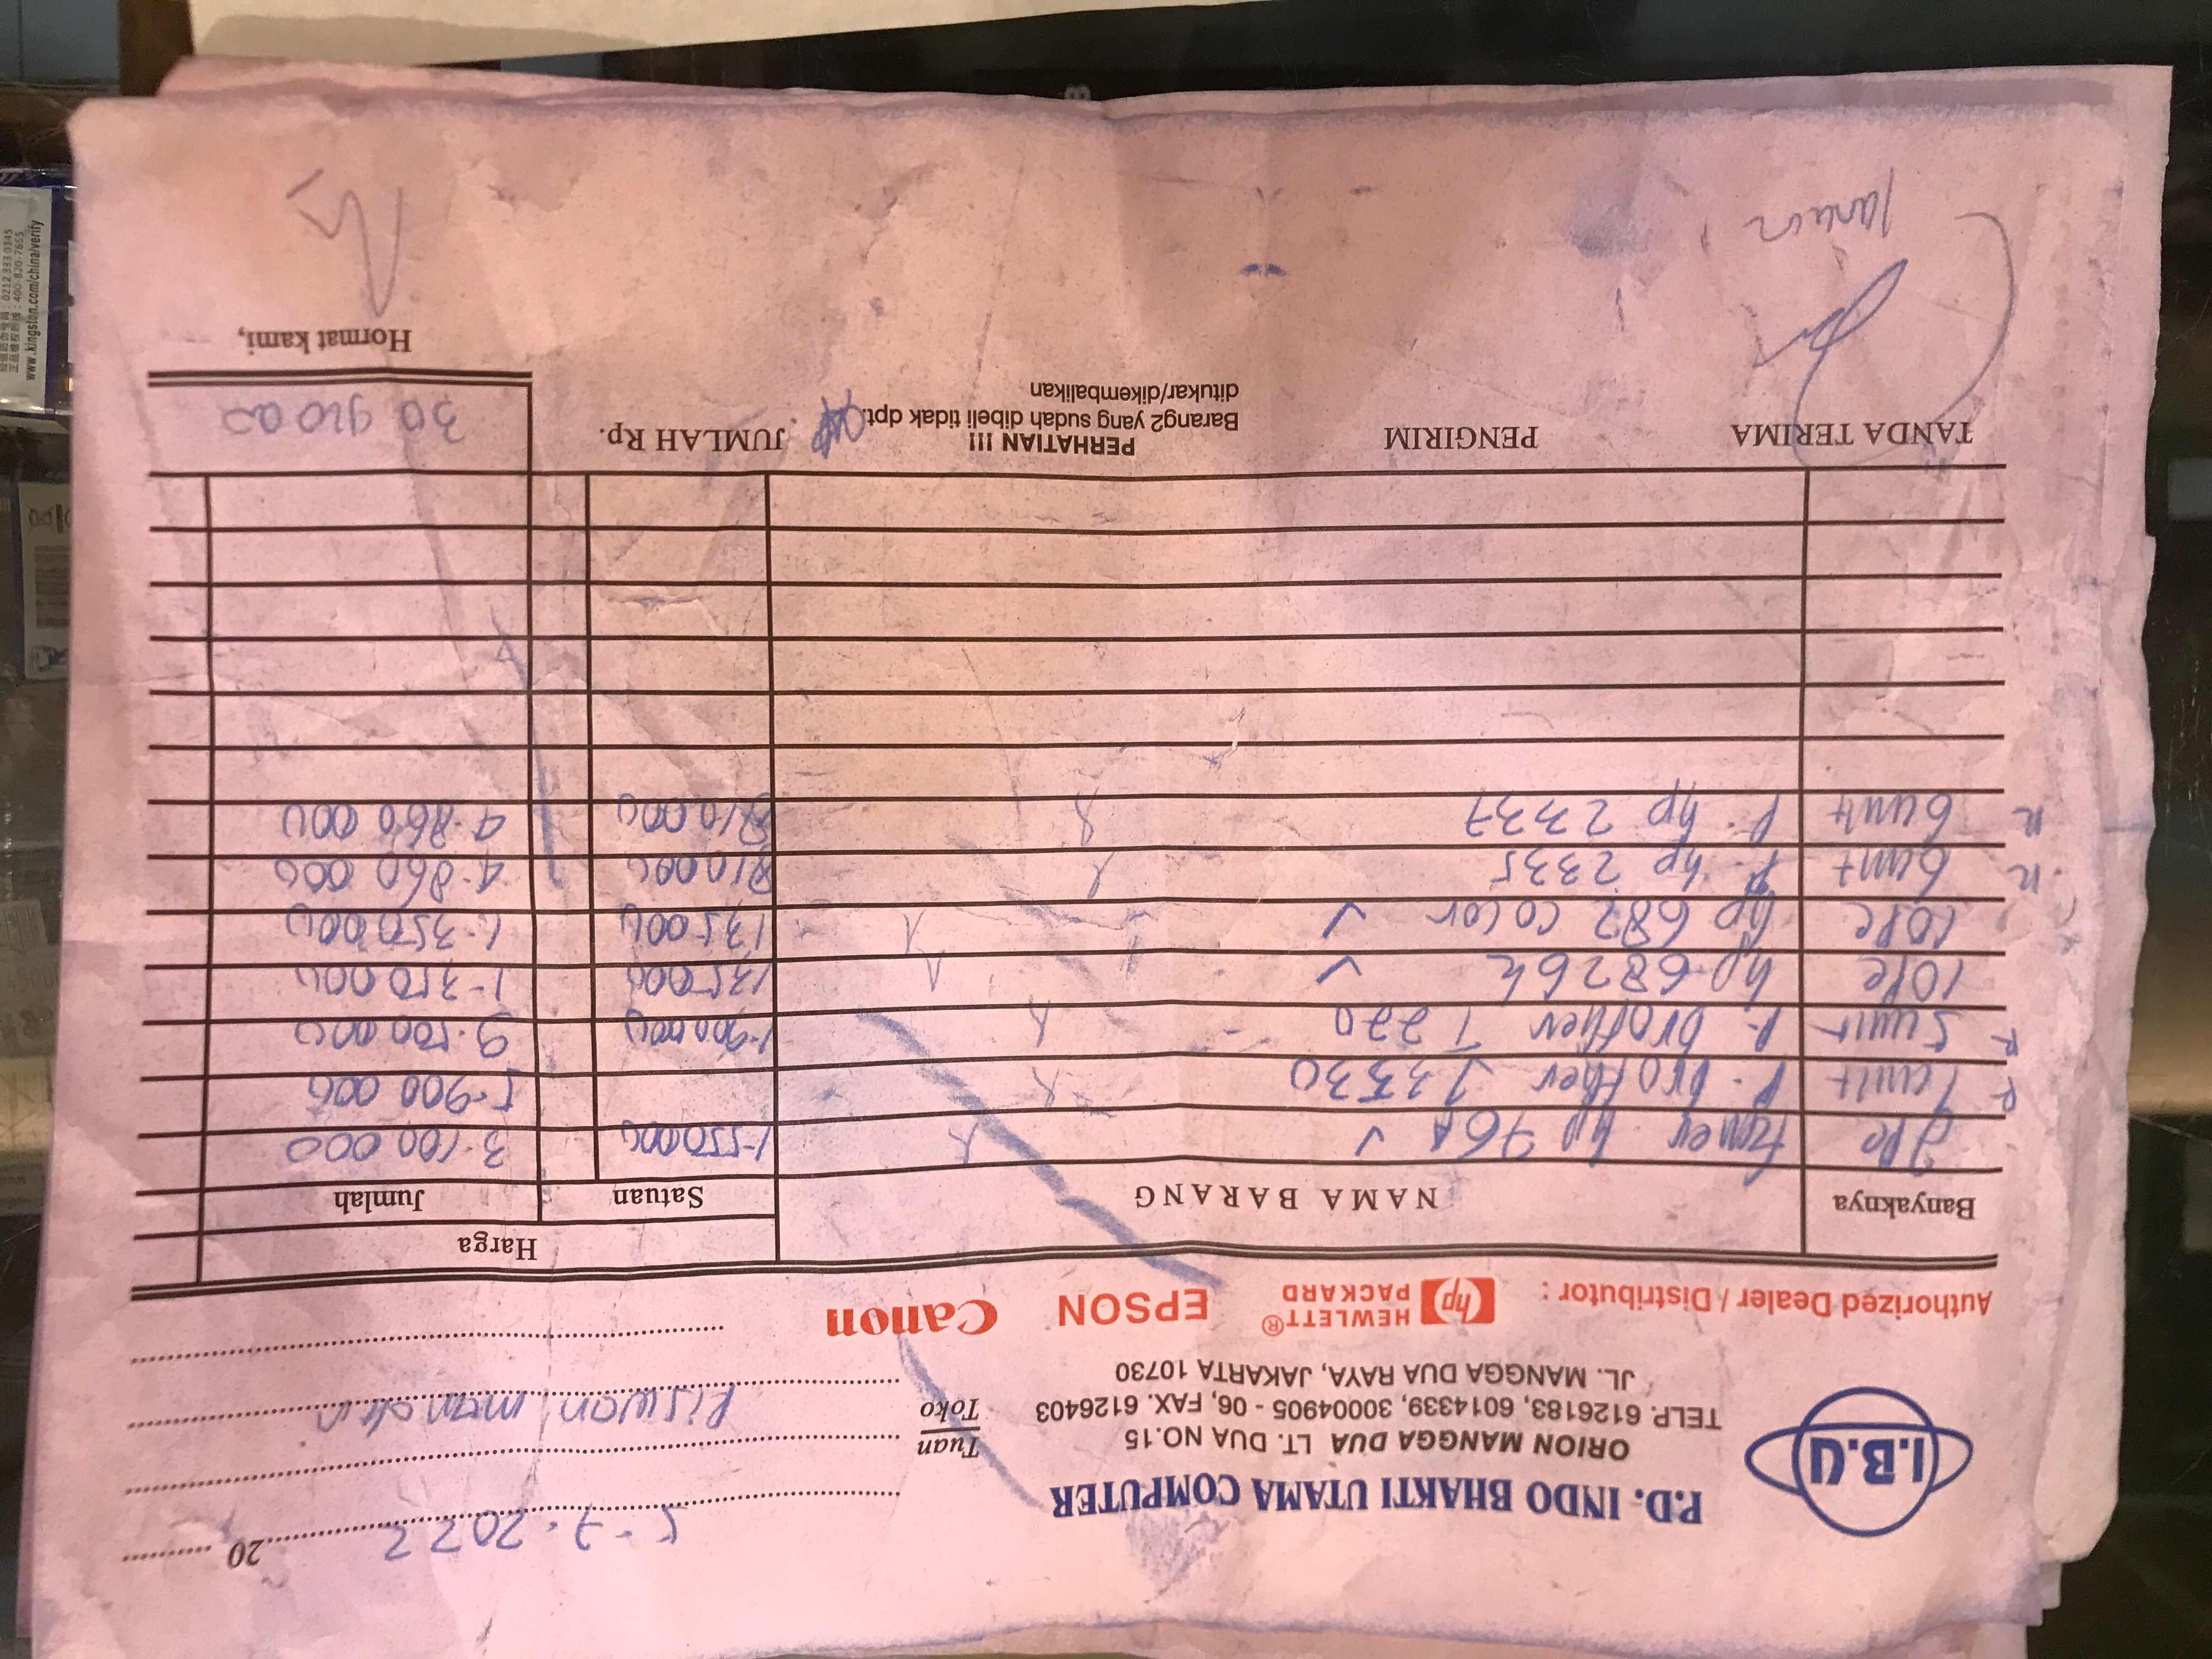 I.B.U
P.D. INDO BHAKTI UTAMA COMPUTER
ORION MANGGA DUA LT. DUA NO.15
TELP. 6126183, 6014339, 30004905 - 06, FAX. 6126403
JL. MANGGA DUA RAYA, JAKARTA 10730
5-7-2022 20
Tuan
Toko
Riswan mandiri
Authorized Dealer / Distributor : hp HEWLETT® PACKARD EPSON Canon
Banyaknya NAMA BARANG Harga
Satuan Jumlah
2pc toner hp 76A ✓ 1.550.000 3.100 000
1 unit p. brother J3530 5.900 000
5 unit p. brother T220 1.900.000 9.500 000
10pc hp 682 bk ✓ 135000 1.350 000
10pc hp 682 color ✓ 135000 1.350 000
6 unit p. hp 2335 810.000 4.860 000
6 unit p. hp 2337 810.000 4.860 000
TANDA TERIMA PENGIRIM PERHATIAN !!! JUMLAH Rp. 30 920 000
Barang2 yang sudah dibeli tidak dpt.
ditukar/dikembalikan
Hormat kami,
0212 333 0345
400-820-7655
www.kingston.com/china/verify